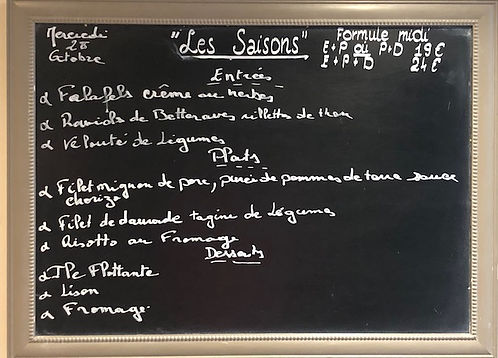 Mercredi
28
Octobre
"Les Saisons"
Formule midi
E+P ou P+D 19€
E+P+D 24€
Entrées
Falafels crème au herbes
Raviols de Betteraves rillettes de thon
Velouté de Légumes
Plats
Filet mignon de porc, purée de pommes de terre sauce
chorizo
Filet de daurade tagine de Légumes
Risotto au Fromage
Desserts
Ile Flottante
Fromage